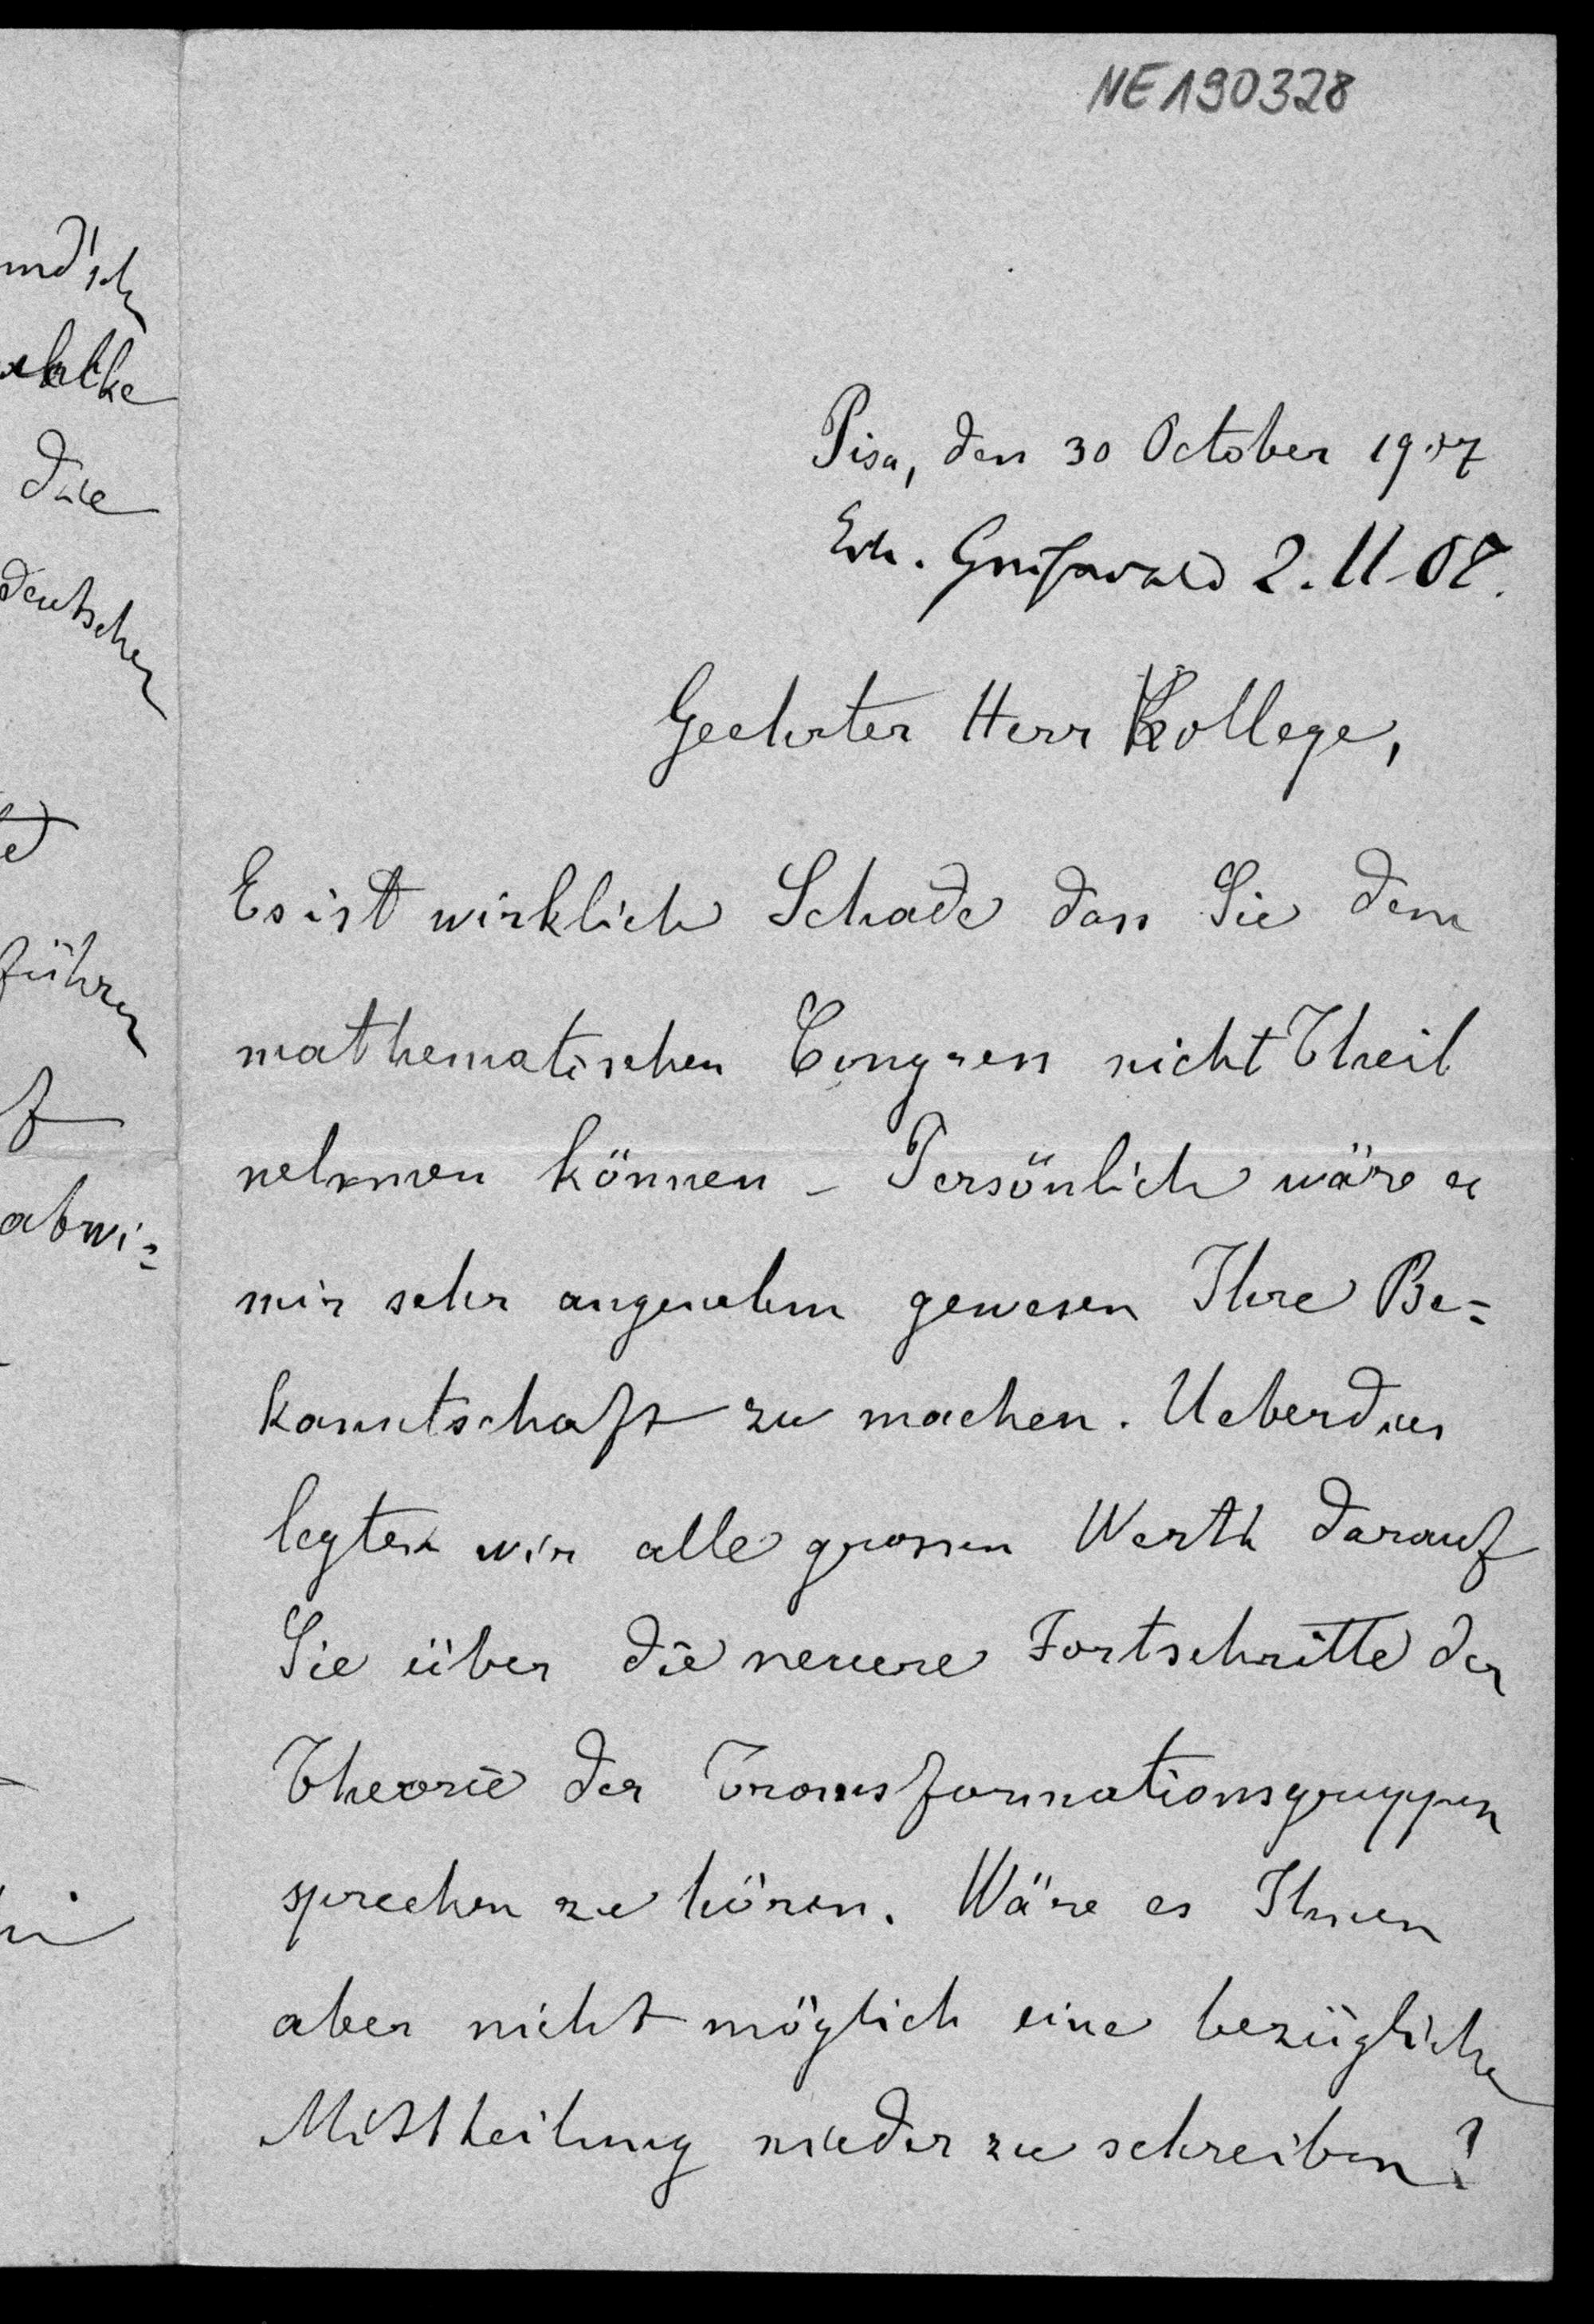 NE190328
Pisa, den 30 October 1907
Erh. Greifswald 2.11.07.
Geehrter Herr Kollege,
Es ist wirklich Schade dass Sie dem
mathematischen Congress nicht Theil
nehmen können – Persönlich wäre es
mir sehr angenehm gewesen Ihre Be=
kanntschaft zu machen. Ueberdies
legten wir alle grossen Werth darauf
Sie über die neuere Fortschritte der
Theorie der Transformationsgruppen
sprechen zu hören. Wäre es Ihnen
aber nicht möglich eine bezügliche
Mittheilung nieder zu schreiben?
die
deutschen
führen
abwi=